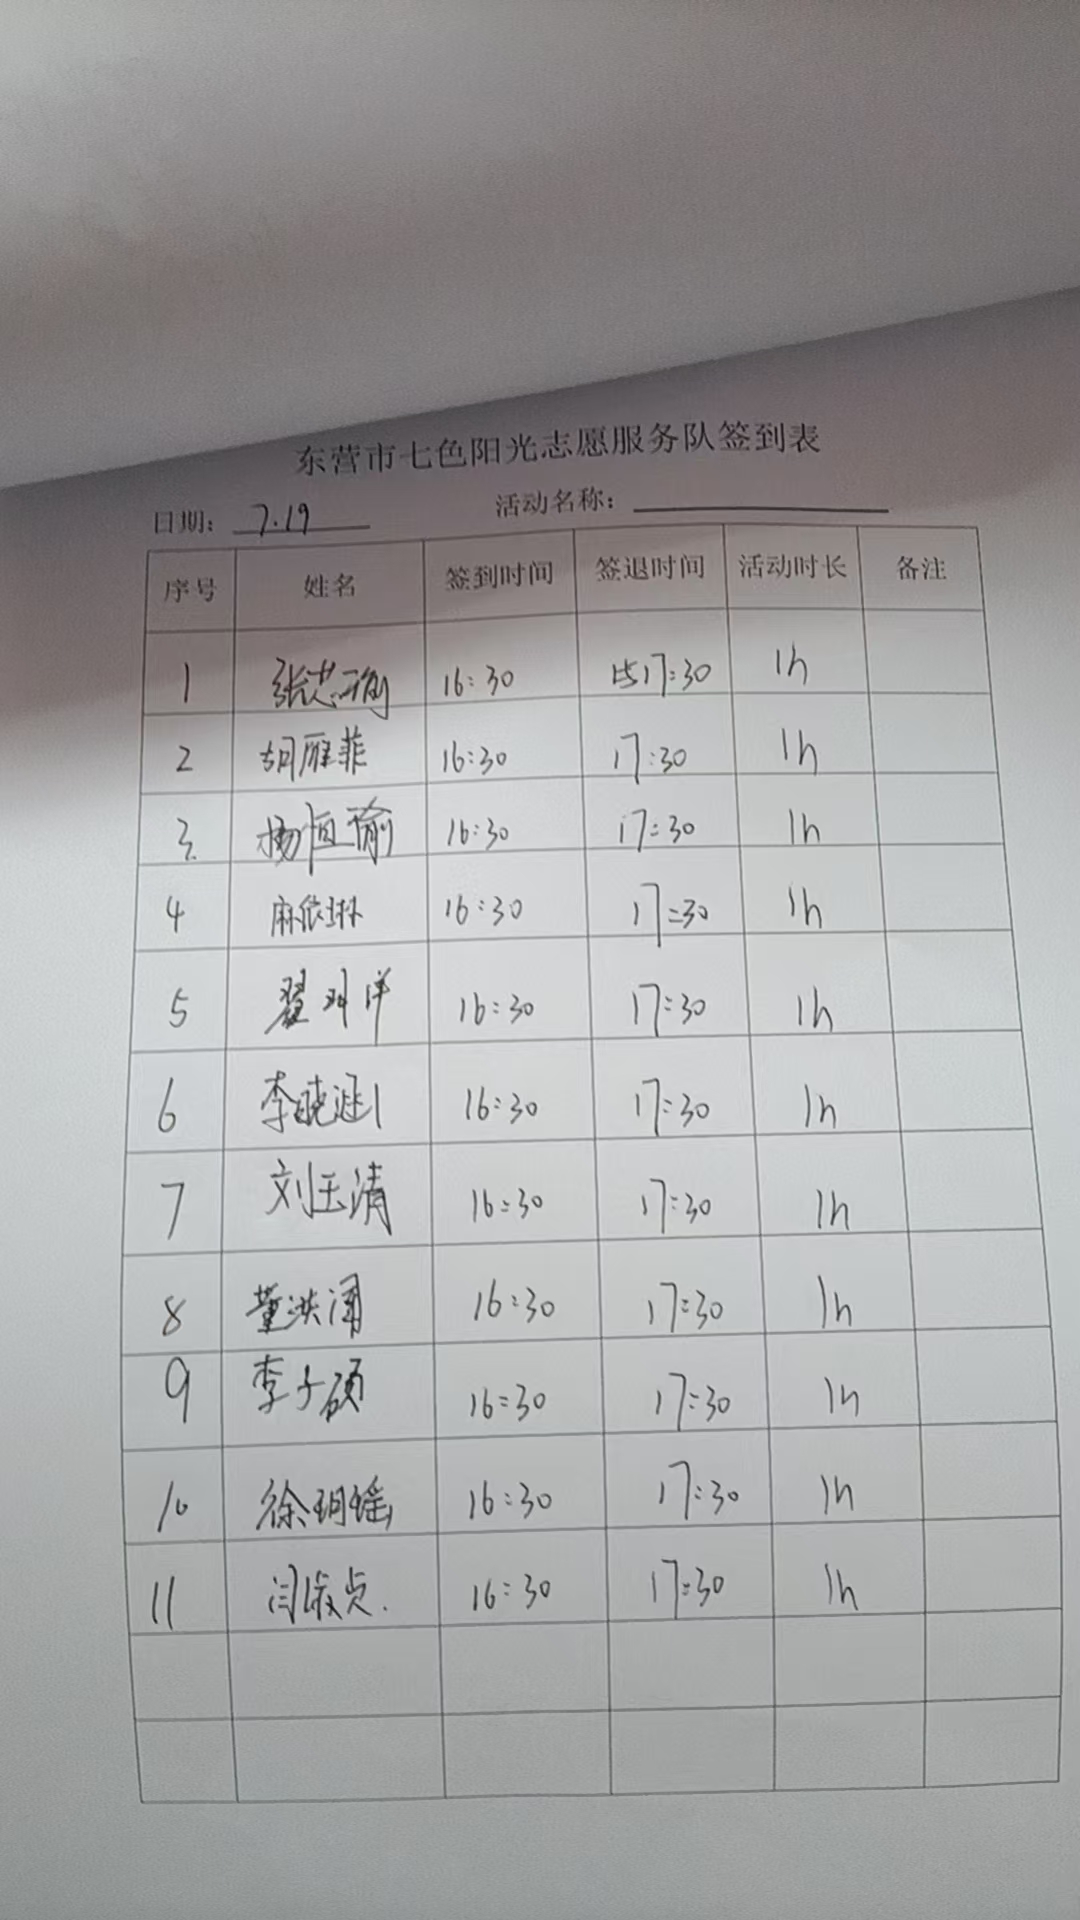 东营市七色阳光志愿服务队签到表
日期: 7.19 活动名称:
序号 姓名 签到时间 签退时间 活动时长 备注
1 张志 16:30 17:30 1h
2 胡雁菲 16:30 17:30 1h
3 杨恒瑜 16:30 17:30 1h
4 麻依琳 16:30 17:30 1h
5 翟 洋 16:30 17:30 1h
6 李晓涵 16:30 17:30 1h
7 刘玉清 16:30 17:30 1h
8 董洪 16:30 17:30 1h
9 李子硕 16:30 17:30 1h
10 徐玥瑶 16:30 17:30 1h
11 闫淑贞. 16:30 17:30 1h